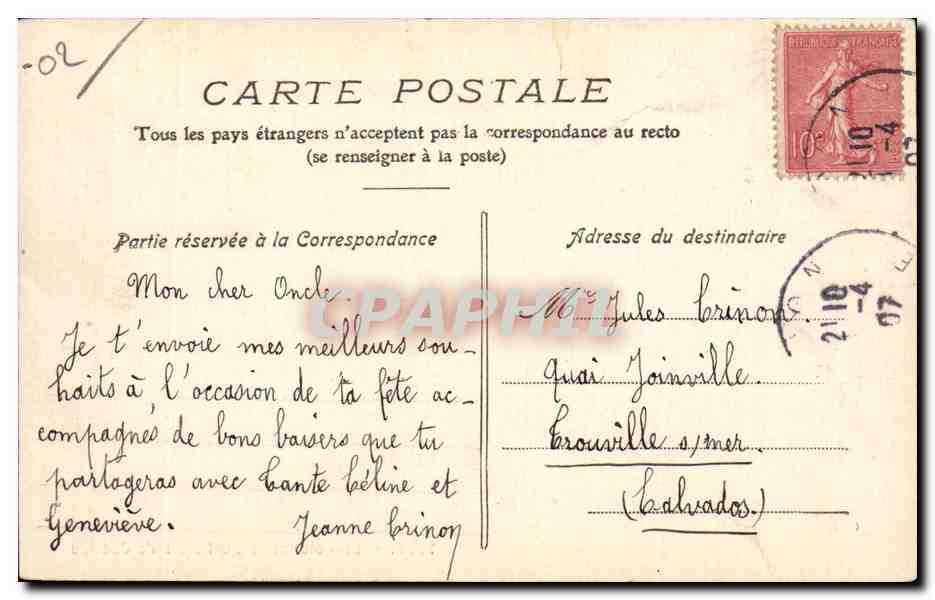 -02
CARTE POSTALE
Tous les pays étrangers n'acceptent pas la correspondance au recto
(se renseigner à la poste)
REPUBLIQUE FRANÇAISE
10c
21 10
-4
07
Partie réservée à la Correspondance
Mon cher Oncle.
Je t'envoie mes meilleurs sou-
haits à l'occasion de ta fête ac-
compagnés de bons baisers que tu
partageras avec Tante Céline et
Geneviève. Jeanne Crinon
Adresse du destinataire
Mr Jules Crinon.
Quai Joinville.
Trouville s/mer.
(Calvados.)
21 10
-4
07
CPAPHIL